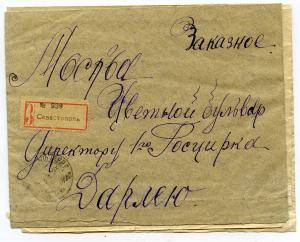 Заказное.
Москва
№ 939
Севастополь
Цветной бульвар
Директору 1го Госцирка
Дарлею